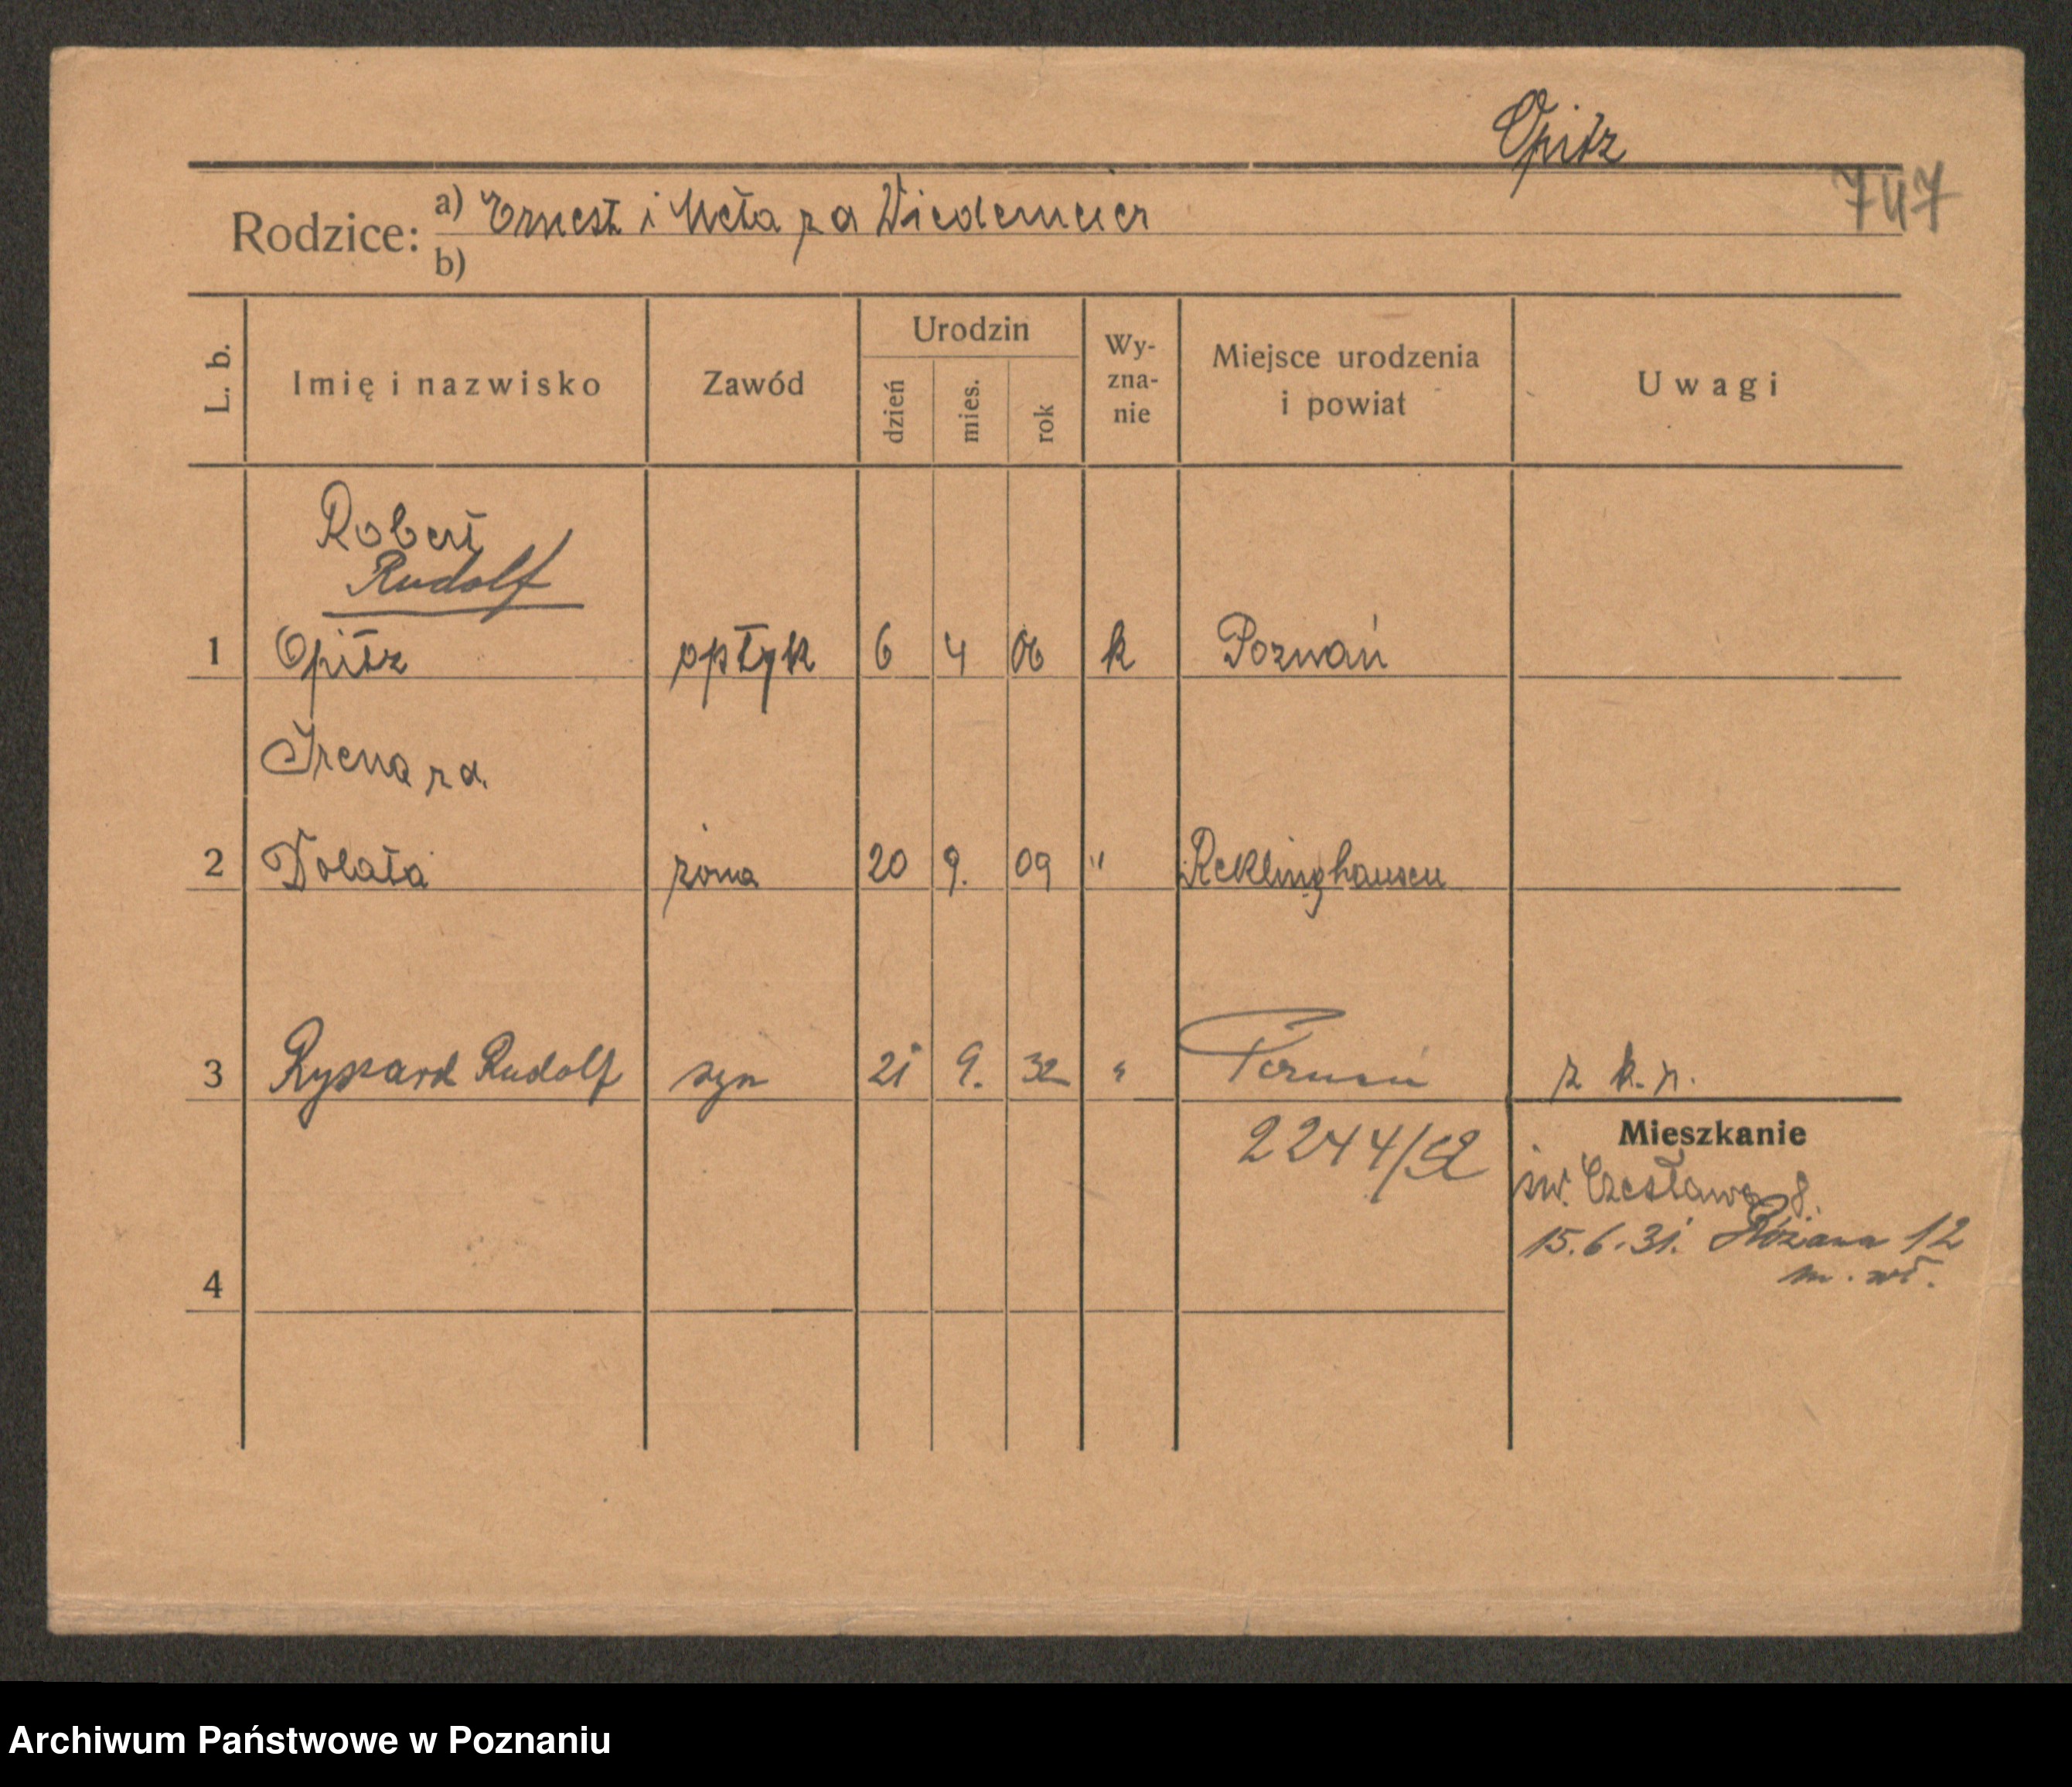 Opitz
747
Rodzice: a) Ernest i Meta z d Wiedemeier
b)
L. b.
Imię i nazwisko
Zawód
Urodzin
dzień
mies.
rok
Wy-
zna-
nie
Miejsce urodzenia
i powiat
Uwagi
Robert
Rudolf
1 Opitz optyk 6 4 06 k Poznań
Irena z d.
2 Dolata żona 20 9. 09 " Reklinghausen
3 Ryszard Rudolf syn 21 9. 32 " Poznań z k. n.
2244/32
Mieszkanie
św. Czesława 8.
15.6.31. Różana 12
m. wł.
4
Archiwum Państwowe w Poznaniu